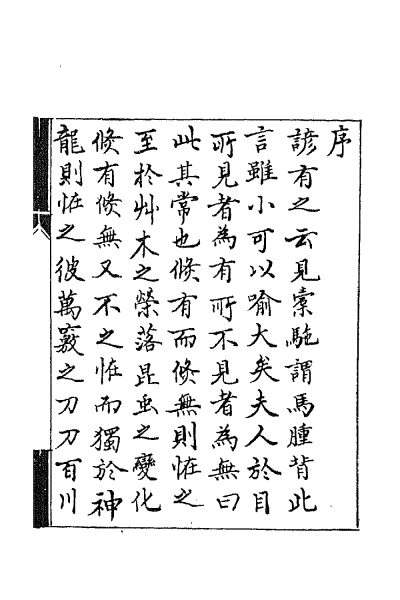 序
諺有之云見橐駞謂馬腫背此
言雖小可以喻大矣夫人於目
所見者為有所不見者為無曰
此其常也倐有而倐無則恠之
至於艸木之榮落昆虫之變化
倐有倐無又不之恠而獨於神
龍則恠之彼萬竅之刀刀百川